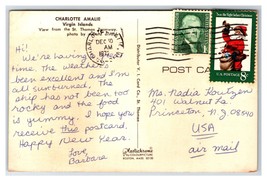 CHARLOTTE AMALIE
Virgin Islands
View from the St. Thomas
photo by
DEC 10
AM
Hi! We're having
home, the weather
been excellent and I'm
all sunburned. The
ship has not been too
rocky and the food
is yummy. I hope you
receive this postcard.
Happy New Year.
Love,
Barbara
POST CARD
Ms. Nadia
401 Walnut La
Princeton, NJ 08540
USA
air mail
U.S. POSTAGE
8c